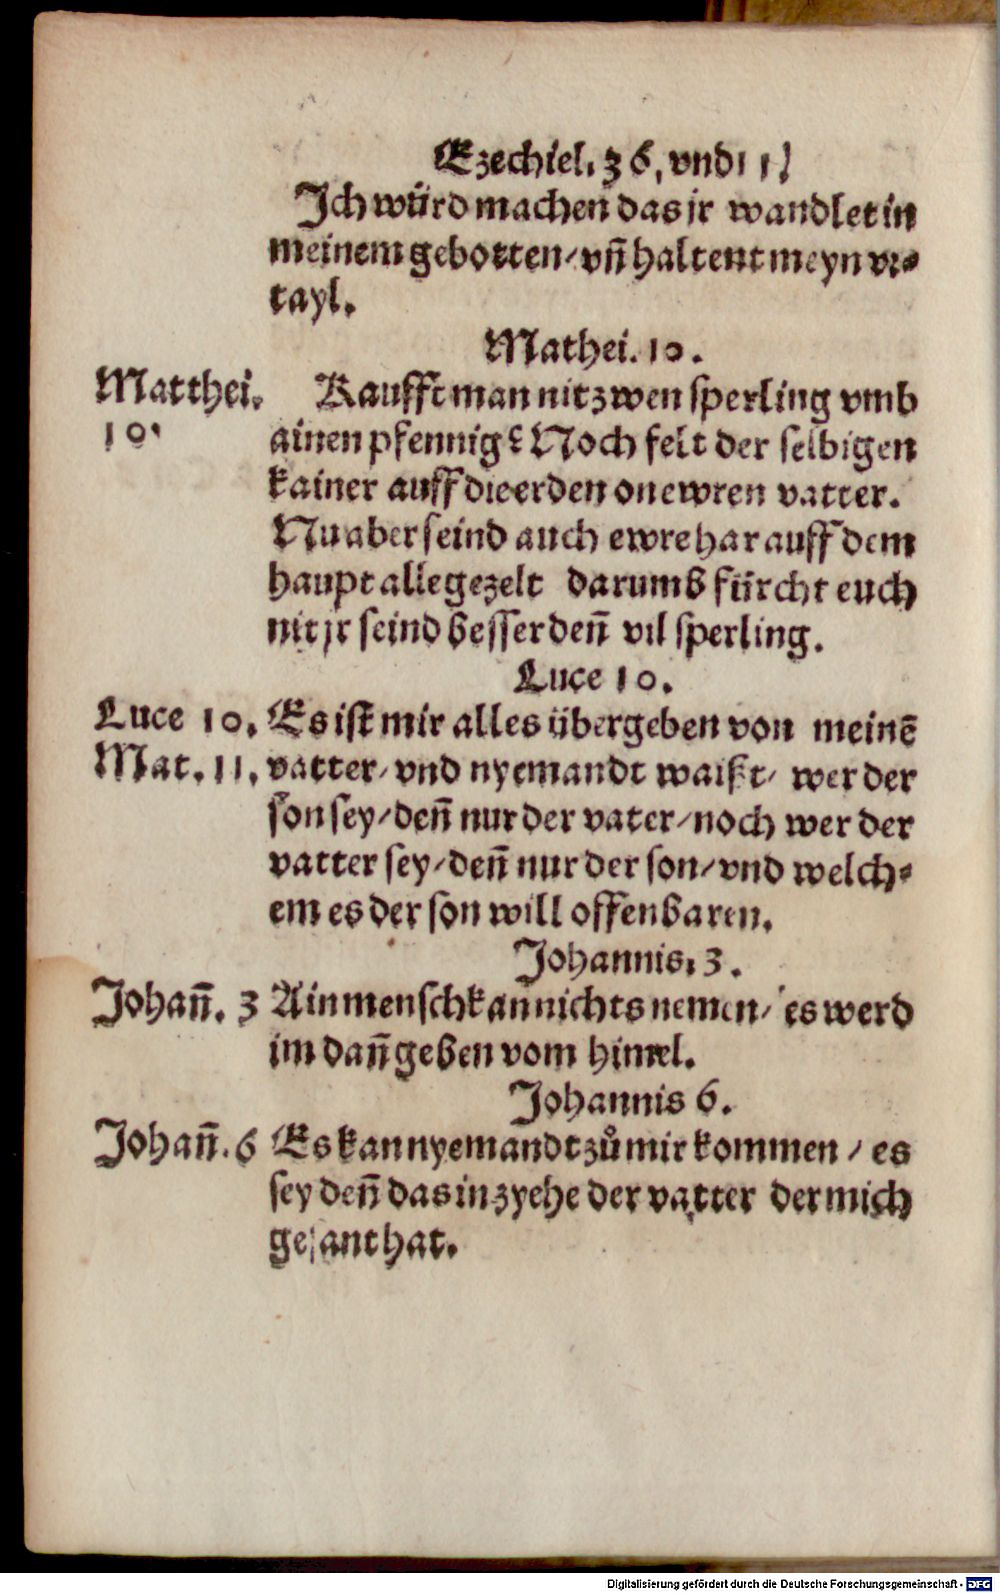 Ezechiel. 36, vnd 11
Ich würd machen das jr wandlet in
meinem gebotten/ vñ haltent meyn vr⸗
tayl.
Mathei. 10.
Matthei. 10. Kaufft man nit zwen sperling vmb
ainen pfennig? Noch felt der selbigen
kainer auff die erden on ewren vatter.
Nu aber seind auch ewre har auff dem
haupt alle gezelt darumb fürcht euch
nit jr seind besser deñ vil sperling.
Luce 10.
Luce 10. Es ist mir alles übergeben von meinē
Mat. 11. vatter/ vnd nyemandt waißt/ wer der
son sey/ deñ nur der vater/ noch wer der
vatter sey/ deñ nur der son/ vnd welch⸗
em es der son will offenbaren.
Johannis. 3.
Johañ. 3 Ain mensch kan nichts nemen/ es werd
im dañ geben vom himel.
Johannis 6.
Johañ. 6 Es kan nyemandt zů mir kommen / es
sey deñ das in zyehe der vatter der mich
gesant hat.
Digitalisierung gefördert durch die Deutsche Forschungsgemeinschaft - DFG